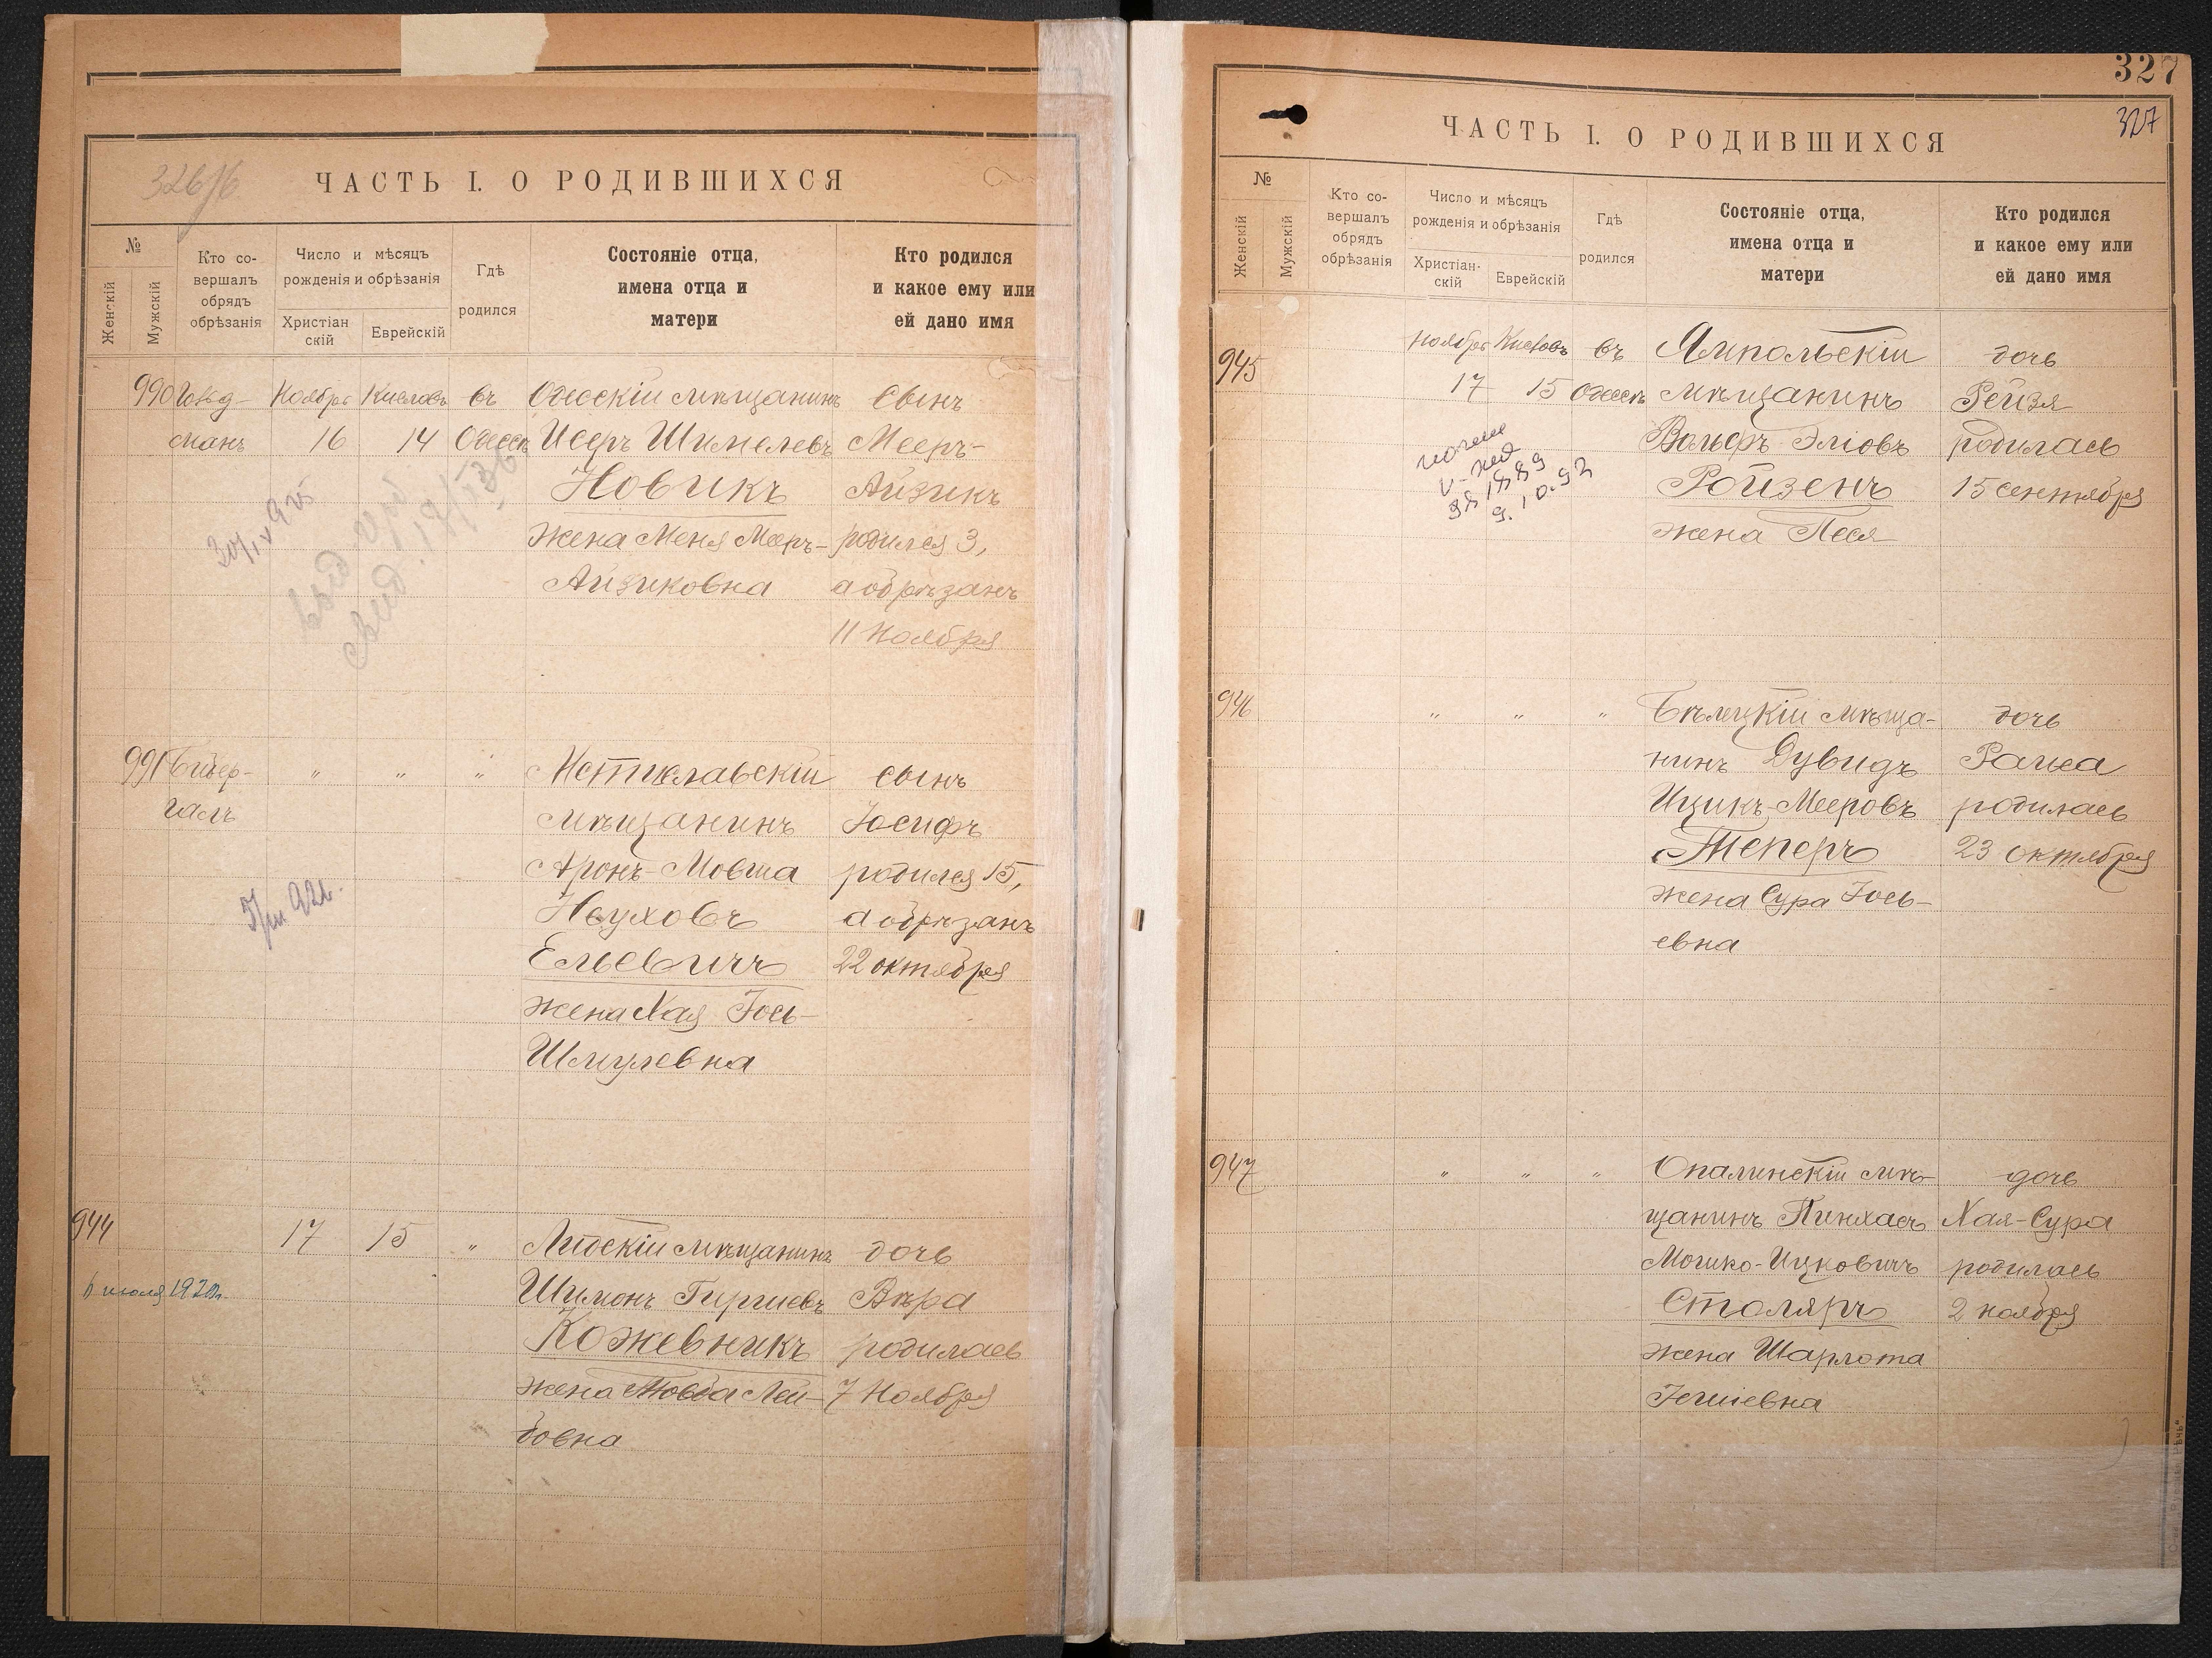 326/б
ЧАСТЬ I. О РОДИВШИХСЯ
№
Женскій
Мужскій
Кто со-
вершалъ
обрядъ
обрѣзанія
Число и мѣсяцъ
рожденія и обрѣзанія
Христіан
скій
Еврейскій
Гдѣ
родился
Состояніе отца,
имена отца и
матери
Кто родился
и какое ему или
ей дано имя
990 Ноябрь Кислевъ въ Одесскій мѣщанинъ сынъ
манъ 16 14 Одессѣ Исеръ Шимелевъ Мееръ-
Новикъ Айзикъ
жена Меня Мееръ- родился 3,
Айзиковна а обрѣзанъ
11 Ноября
991 Бибер- " " " Мстиславскій сынъ
галь мѣщанинъ Іосифъ
Аронъ-Мовша родился 15,
Неуховъ а обрѣзанъ
Ельевичъ 22 октября
жена Хая Іось-
Шмулевна
944 17 15 " Лидскій мѣщанинъ дочь
6 июля 1920г. Шимонъ Гиршевъ Вѣра
Кожевникъ родилась
жена Люба Лей- 7 Ноября
бовна
327
327
ЧАСТЬ I. О РОДИВШИХСЯ
№
Женскій
Мужскій
Кто со-
вершалъ
обрядъ
обрѣзанія
Число и мѣсяцъ
рожденія и обрѣзанія
Христіан-
скій
Еврейскій
Гдѣ
родился
Состояніе отца,
имена отца и
матери
Кто родился
и какое ему или
ей дано имя
945 Ноябрь Кислевъ въ Ямпольскій дочь
17 15 Одессѣ мѣщанинъ Рейзя
Вольфъ Эліовъ родилась
Ройзенъ 15 сентября
жена Песя
9.10.92
946 " " " Бѣлецкій мѣща- дочь
нинъ Дувидъ Раиса
Ицикъ-Мееровъ родилась
Теперъ 23 октября
жена Сура Іось-
евна
947 " " " Опалинскій мѣ- дочь
щанинъ Пинхасъ Хая-Сура
Мошко-Ицковичъ родилась
Столяръ 2 ноября
жена Шарлота